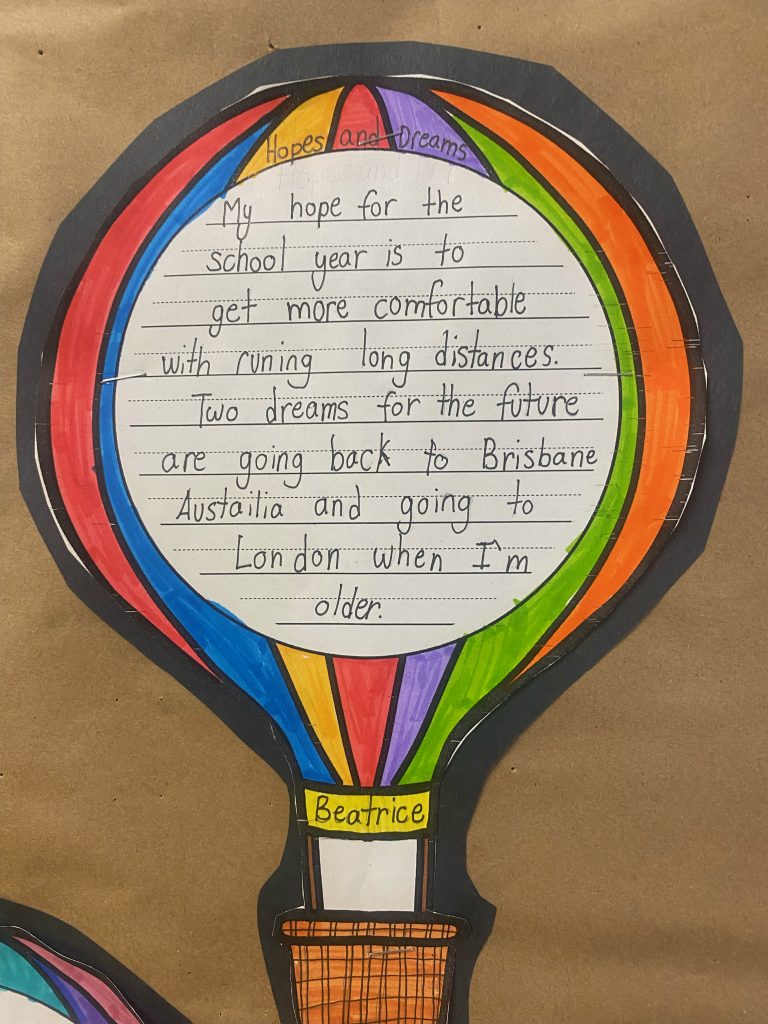 Hopes and Dreams
My hope for the
school year is to
get more comfortable
with runing long distances.
Two dreams for the future
are going back to Brisbane
Austailia and going to
London when I'm
older.
Beatrice